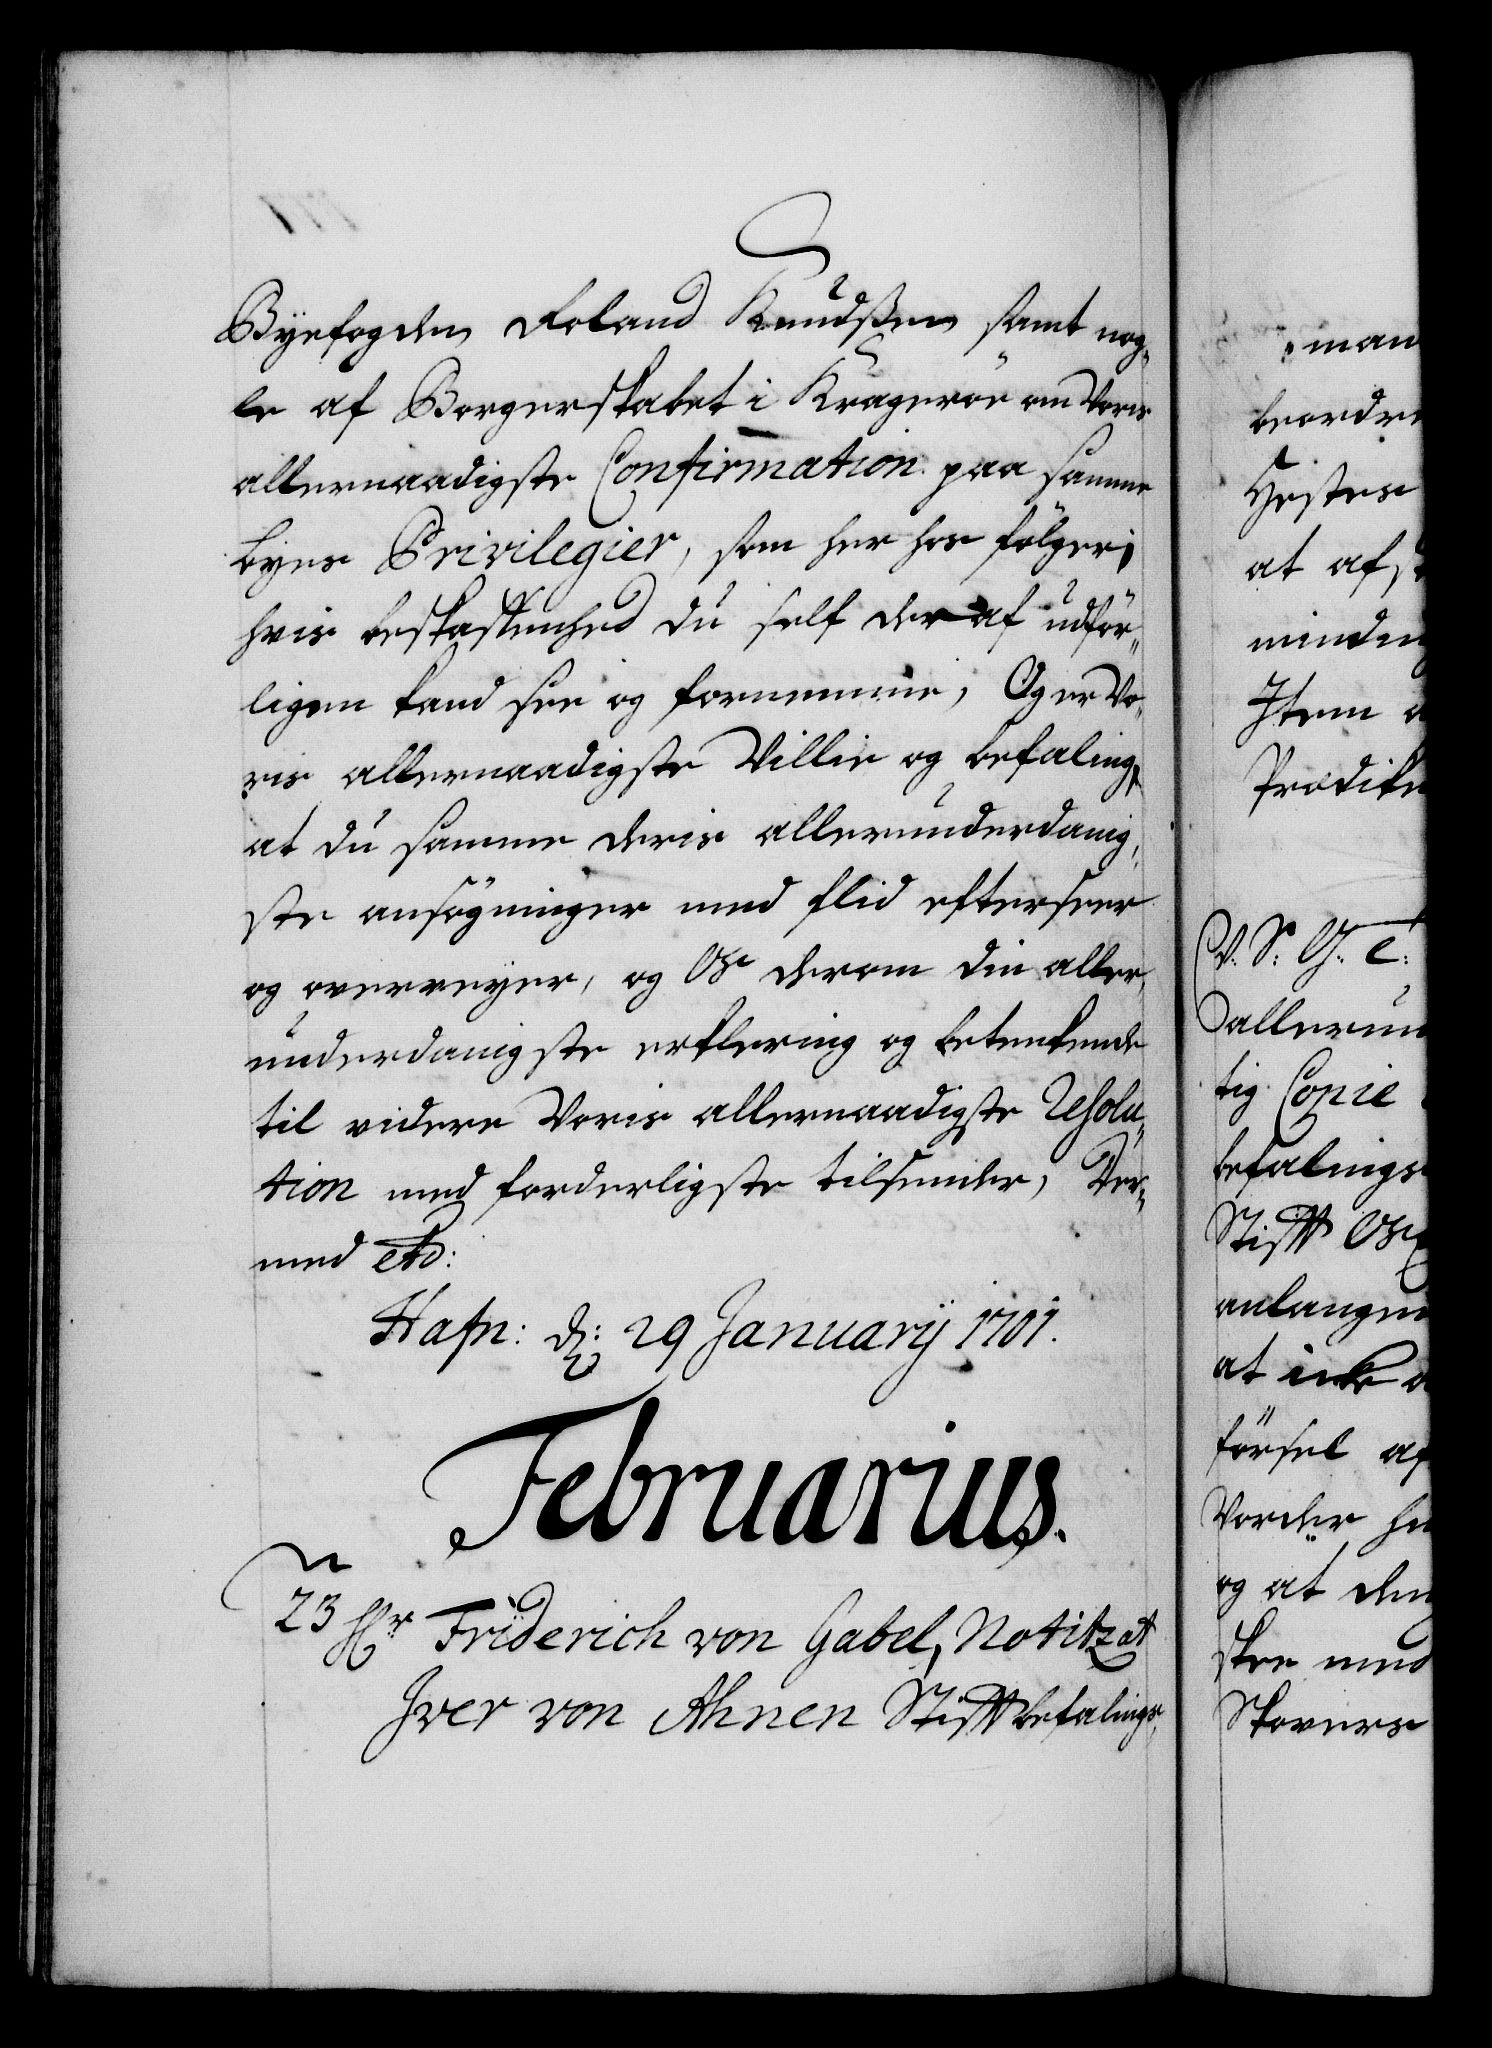 Byefogden Roland Knudssen samt nog„
le af Borgerskabet i Krageröe om Voris
allernaadigste Confirmation paa samme
byes Privilegier, som her hos fölger,
hvis beskaffenhed du self der af udför„
ligen kand see og fornemme, Og er Vo„
ris allernaadigste Villie og befaling,
at du samme deris allerunderdanig„
ste ansögninger med flid efterseer
og overveyer, og Os derom din aller„
underdanigste erklering og betenkende
til videre Voris allernaadigste Resolu„
tion med forderligste tilsender, Der„
med etc:
Hafn: d: 29 January 1701.
Februarius.
23 Hr Friderich von Gabel, Notitz at
Iver von Ahnen Stifftbefalings„
man
beordre
Hester
at
minde
Item
Prædike
V: S: G: T:
allerun
tig Copie
befalings
Stifft
anlangen
at icke
försel af
Vorder
og at den
skee med
Skovers